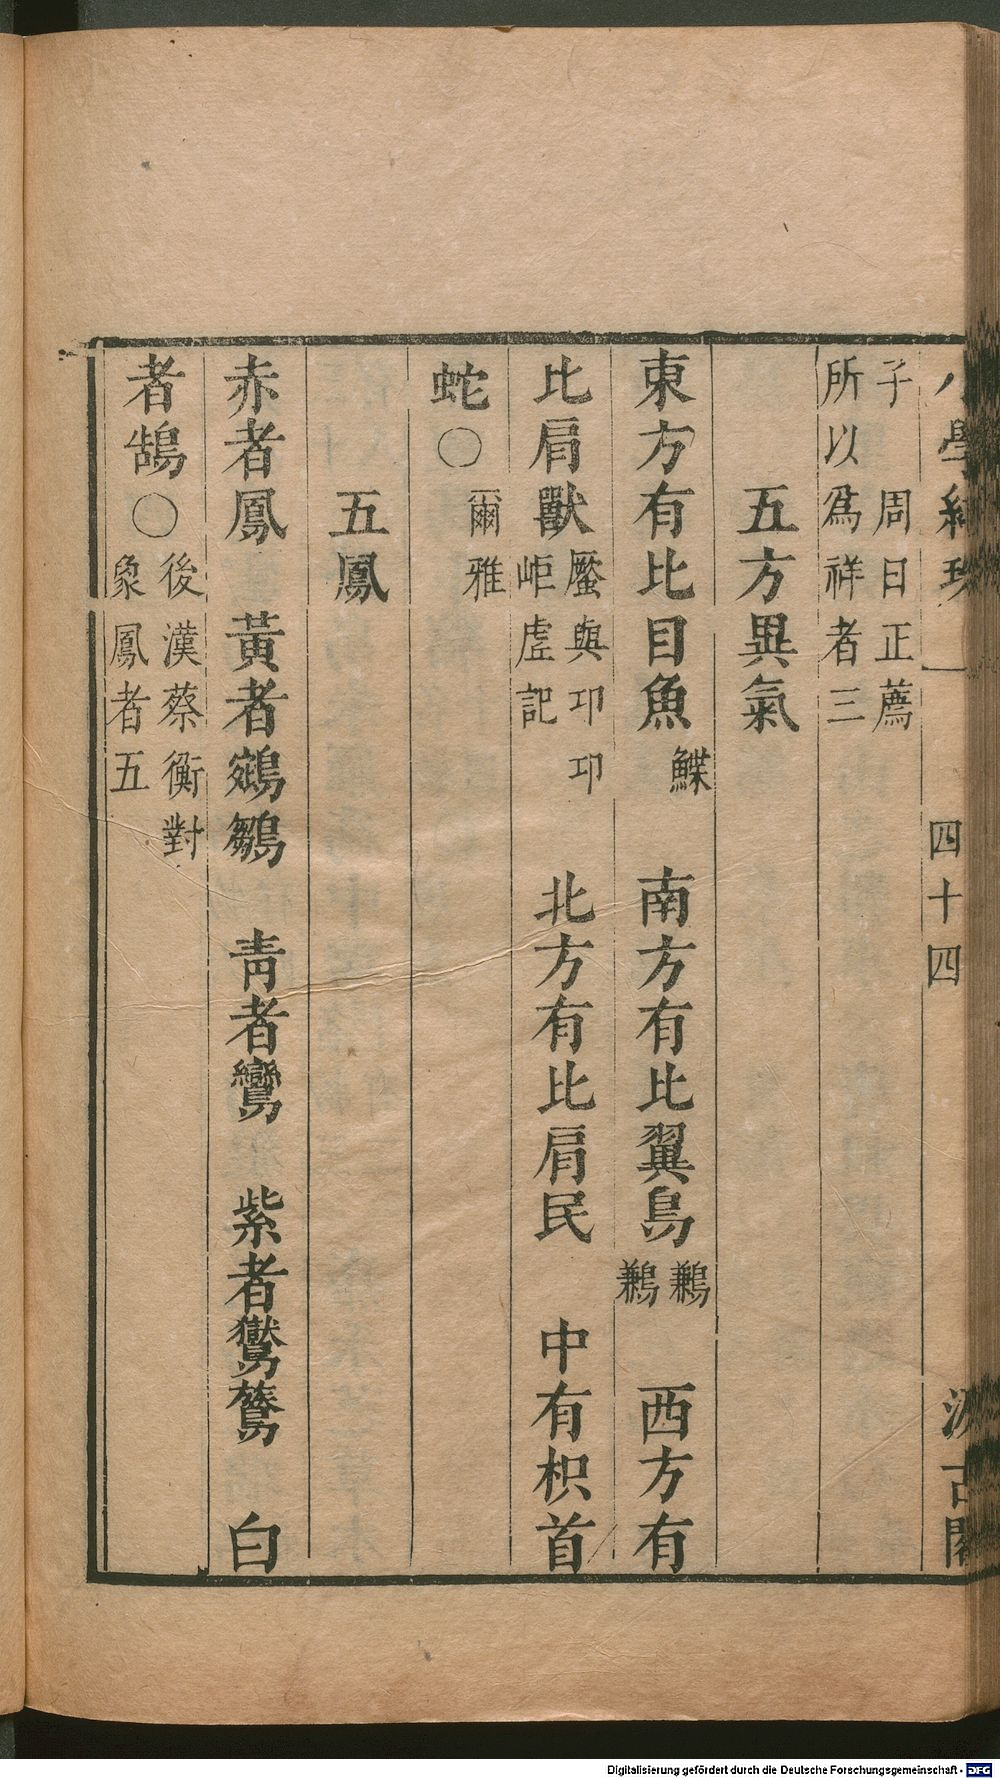 小學紺珠 一 四十四 汲古閣
子 周日正薦
所以爲祥者三
五方異氣
東方有比目魚 鰈 南方有比翼鳥 鶼鶼 西方有
比肩獸 蟨與邛邛岠虛記 北方有比肩民 中有枳首
蛇〇 爾雅
五鳳
赤者鳳 黃者鵷鶵 青者鸞 紫者鸑鷟 白
者鵠〇 後漢蔡衡對象鳳者五
Digitalisierung gefördert durch die Deutsche Forschungsgemeinschaft - DFG